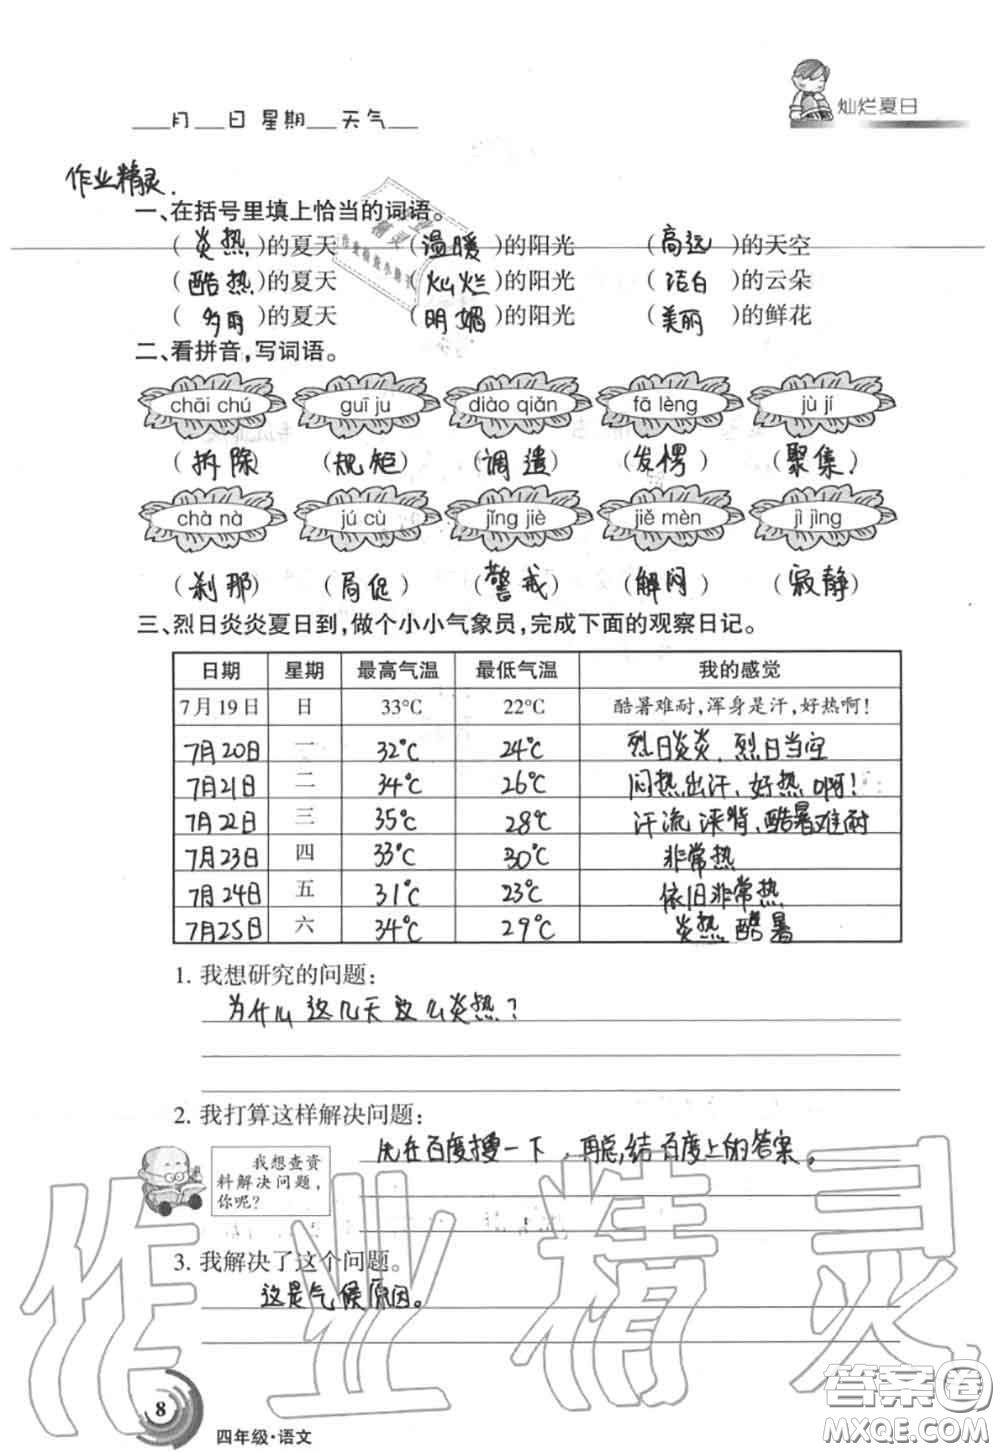 灿烂夏日
___月___日 星期___天气___
作业精灵.
一、在括号里填上恰当的词语。
(炎热)的夏天 (温暖)的阳光 (高远)的天空
(酷热)的夏天 (灿烂)的阳光 (洁白)的云朵
(多雨)的夏天 (明媚)的阳光 (美丽)的鲜花
二、看拼音,写词语。
chāi chú guī ju diào qiǎn fā lèng jù jí
(拆除) (规矩) (调遣) (发愣) (聚集)
chà nà jú cù jǐng jiè jiě mèn jì jìng
(刹那) (局促) (警戒) (解闷) (寂静)
三、烈日炎炎夏日到,做个小小气象员,完成下面的观察日记。
日期 星期 最高气温 最低气温 我的感觉
7月19日 日 33°C 22°C 酷暑难耐,浑身是汗,好热啊!
7月20日 一 32°C 24°C 烈日炎炎、烈日当空
7月21日 二 34°C 26°C 闷热出汗、好热啊!
7月22日 三 35°C 28°C 汗流浃背、酷暑难耐
7月23日 四 33°C 30°C 非常热
7月24日 五 31°C 23°C 依旧非常热
7月25日 六 34°C 29°C 炎热 酷暑
1. 我想研究的问题:
为什么这几天这么炎热?
2. 我打算这样解决问题:
先在百度搜一下,再总结百度上的答案。
我想查资
料解决问题,
你呢?
3. 我解决了这个问题。
这是气候原因。
作业精灵
答案卷
8
四年级·语文